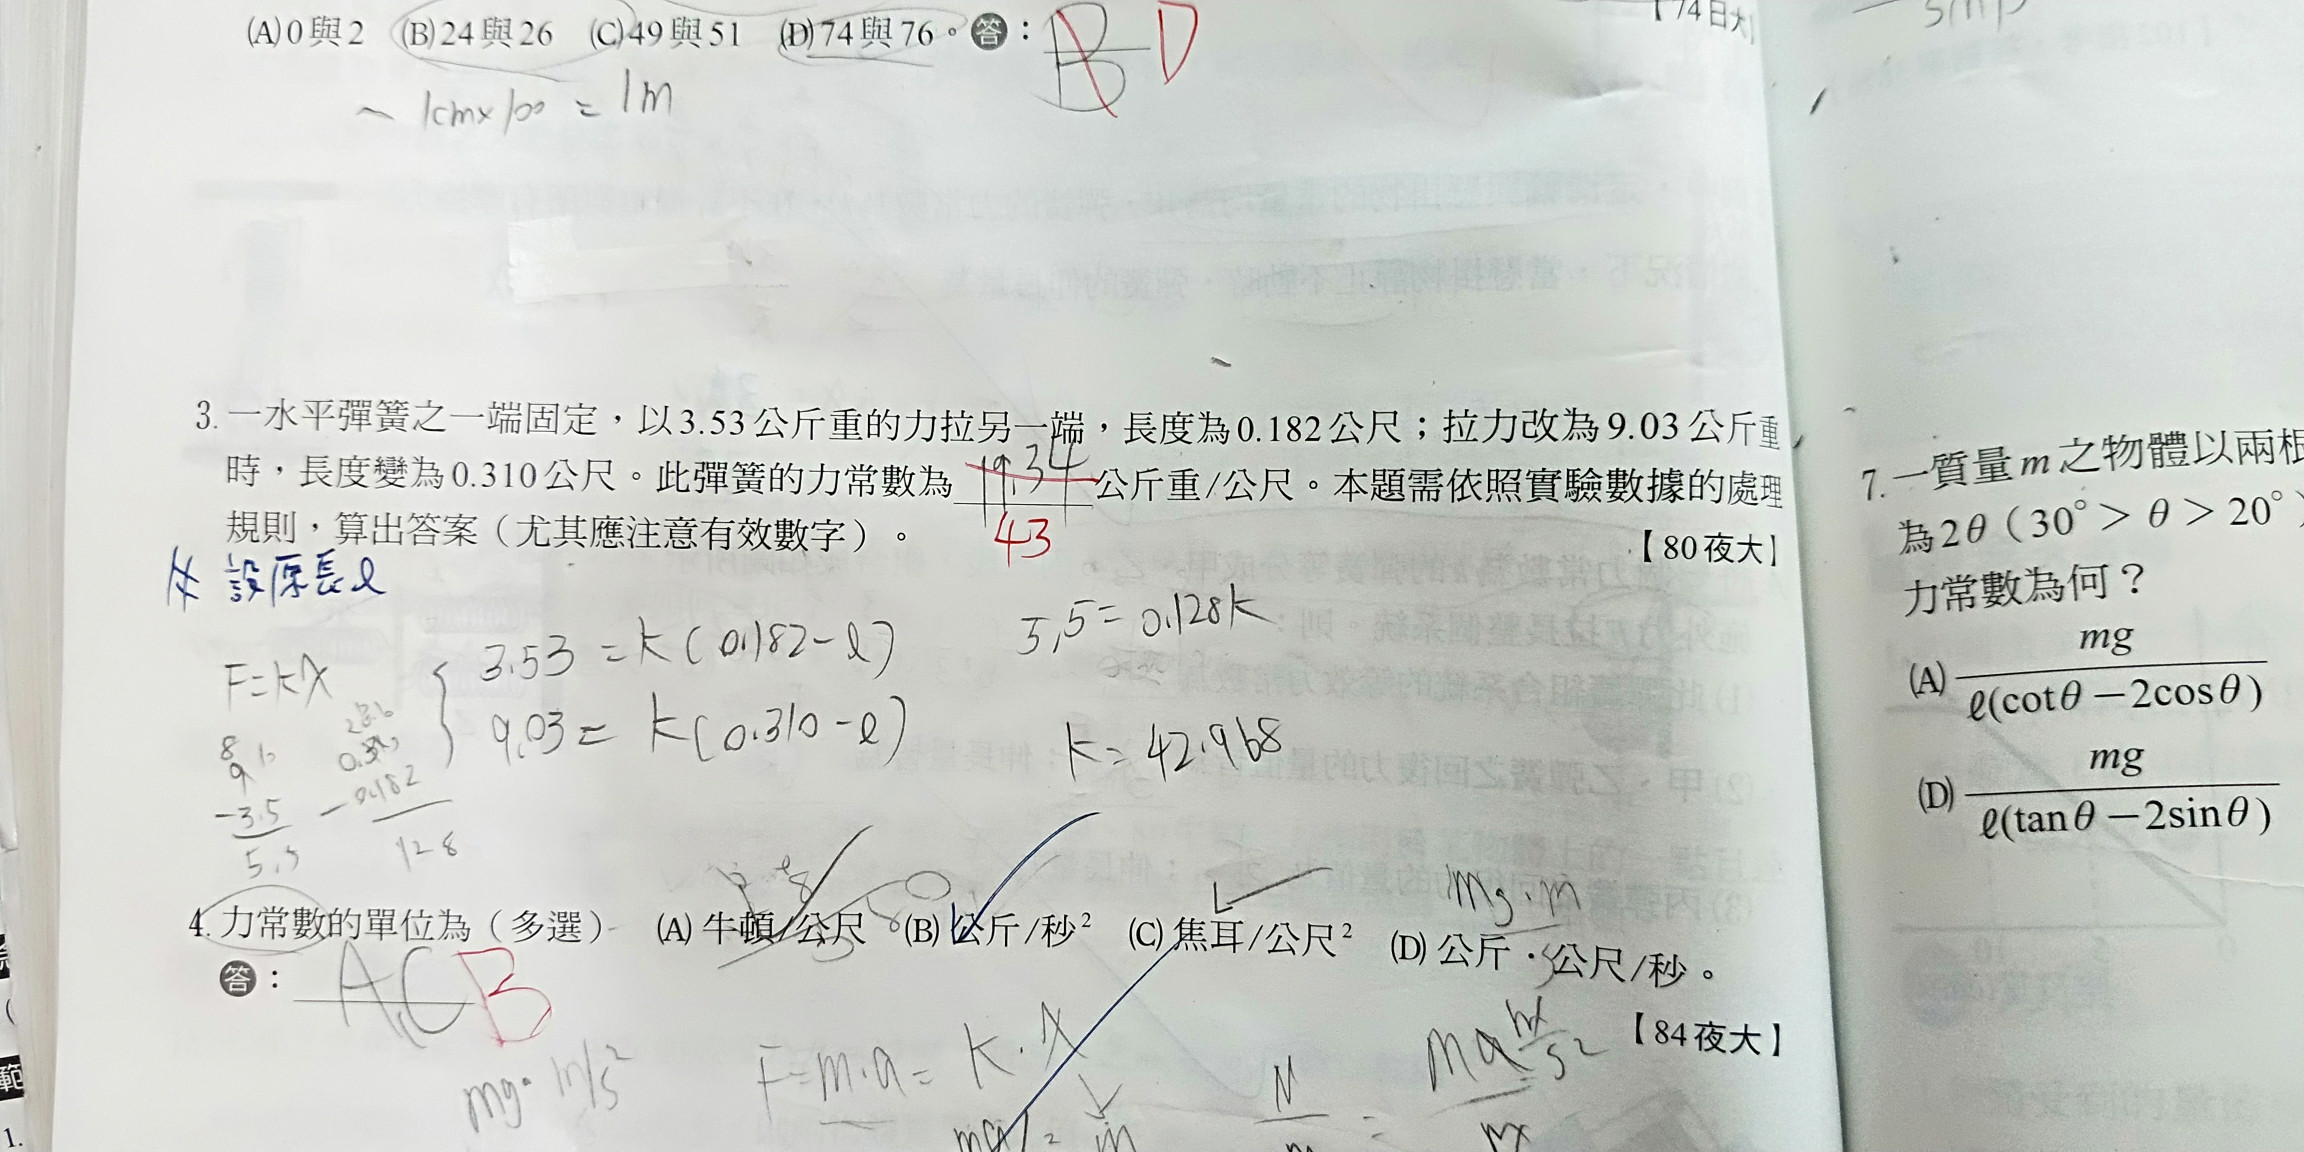 (A) 0與2 (B) 24與26 (C) 49與51 (D) 74與76。答：B D
【74日大】
~ 1cm×100 = 1m
3. 一水平彈簧之一端固定，以3.53公斤重的力拉另一端，長度為0.182公尺；拉力改為9.03公斤重
時，長度變為0.310公尺。此彈簧的力常數為 19.34 公斤重/公尺。本題需依照實驗數據的處理
規則，算出答案（尤其應注意有效數字）。 43 【80夜大】
設原長ℓ
F=kX
3.53 = k(0.182-ℓ)
9.03 = k(0.310-ℓ)
5.5 = 0.128k
k = 42.968
-3.5
5.5
-0.182
128
4. 力常數的單位為（多選） (A) 牛頓/公尺 (B) 公斤/秒² (C) 焦耳/公尺² (D) 公斤·公尺/秒。
答：AC B
【84夜大】
mg·m
mg·m/s²
F=m·a= k·X
N
m
=
7. 一質量m之物體以兩根
為2θ（30°＞θ＞20°）
力常數為何？
(A) mg
ℓ(cotθ－2cosθ)
(D) mg
ℓ(tanθ－2sinθ)